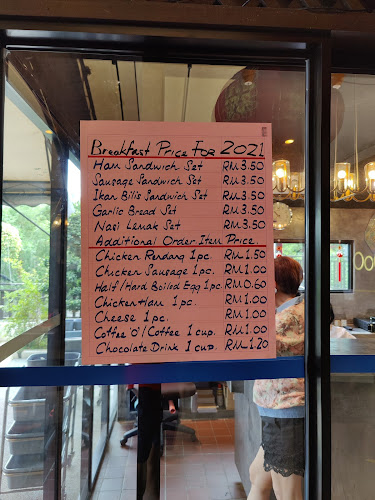 Breakfast Price For 2021
Ham Sandwich Set RM3.50
Sausage Sandwich Set RM3.50
Ikan Bilis Sandwich Set RM3.50
Garlic Bread Set RM3.50
Nasi Lemak Set RM3.50
Additional Order Item Price
Chicken Rendang 1pc. RM1.50
Chicken Sausage 1pc. RM1.00
Half/Hard Boiled Egg 1pc. RM0.60
Chicken Ham 1pc. RM1.00
Cheese 1pc. RM1.00
Coffee 'O'/Coffee 1 cup. RM1.00
Chocolate Drink 1 cup. RM1.20